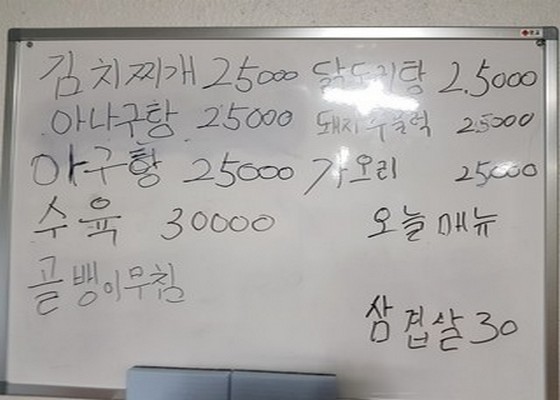 김치찌개 25000 닭도리탕 25000
아나구탕 25000 돼지 두물럭 25000
아구탕 25000 가오리 25000
수육 30000 오늘 매뉴
골뱅이무침
삼겹살 30